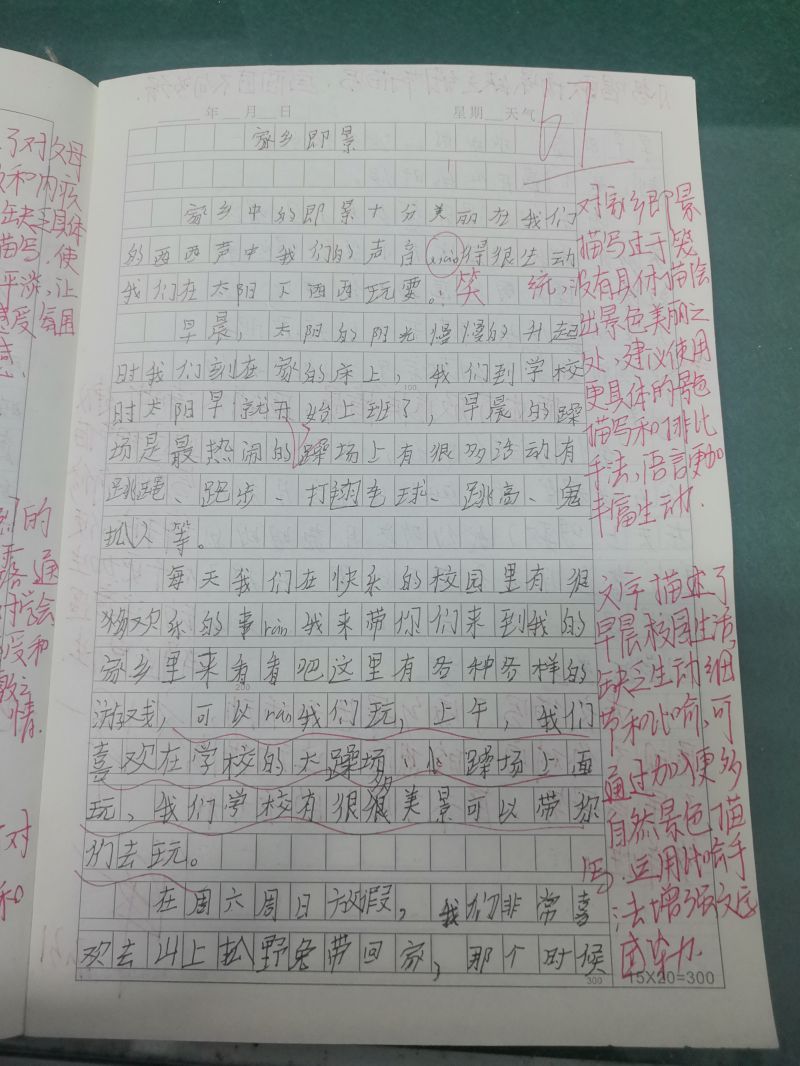 年 月 日 星期 天气
67
家乡即景
家乡中的即景十分美丽在我们
的西西声中我们的声音xiào得很生动
我们在太阳下西西玩耍。笑 统
早晨,太阳的阳光慢慢的升起
时我们刻在家的床上,我们到学校
时太阳早就开始上班了,早晨的躁
场是最热闹的躁场上有很多活动有
跳绳、跑步、打羽毛球、跳高、鬼
抓人等。
每天我们在快乐的校园里有很
多欢乐的事ràn我来带你们来到我的
家乡里来看看吧这里有各种各样的
游戏,可以ràn我们玩,上午,我们
喜欢在学校的大躁场、小躁场上面
玩,我们学校有很多美景可以带你
们去玩。
在周六周日放假,我们非常喜
欢去山上抓野兔带回家,那个时候
100
200
300
15X20=300
对家乡即景
描写过于笼
没有具体描绘
出景色美丽之
处,建议使用
更具体的景色
描写和排比
手法,语言更加
丰富生动.
文字描述了
早晨校园生活,
缺乏生动细
节和比喻,可
通过加更多
自然景色描
写.运用比喻手
法增强文
了对父母
和内疚
缺乏具体
描写,使
平淡,让
感受
感.
的
通
受和
情.
对
和